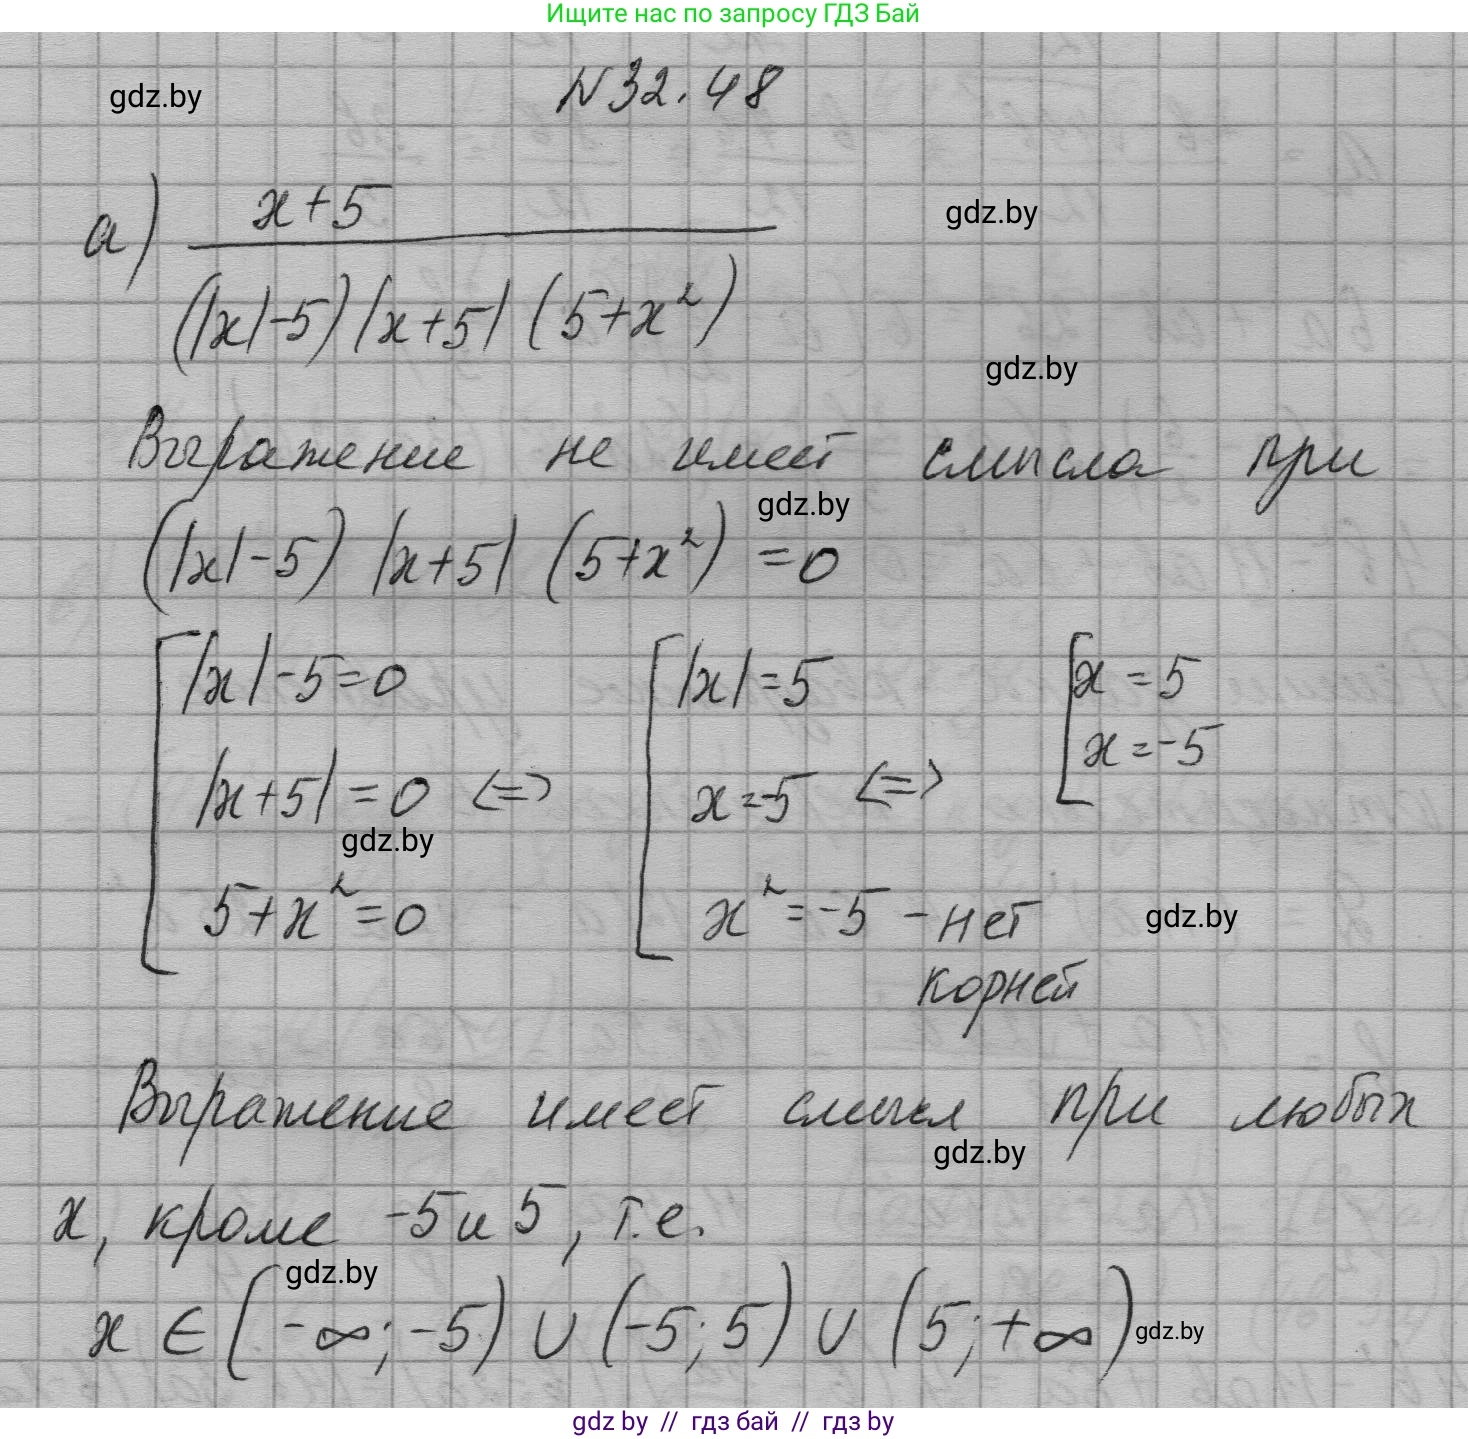 Ищите нас по запросу ГДЗ Бай
gdz.by
N 32.48
а) x+5
gdz.by
(|x|-5)|x+5|(5+x²)
gdz.by
Выражение не имеет смысла при
gdz.by
(|x|-5) |x+5| (5+x²) =0
|x|-5=0 |x|=5 x=5
x=-5
|x+5|=0 <=> x=-5 <=>
gdz.by
5+x²=0 x²=-5 - нет
gdz.by
корней
Выражение имеет смысл при любых
gdz.by
x, кроме -5 и 5, т.е.
gdz.by
x ∈ (-∞; -5) ∪ (-5; 5) ∪ (5; +∞)
gdz.by
gdz by // гдз бай // гдз by